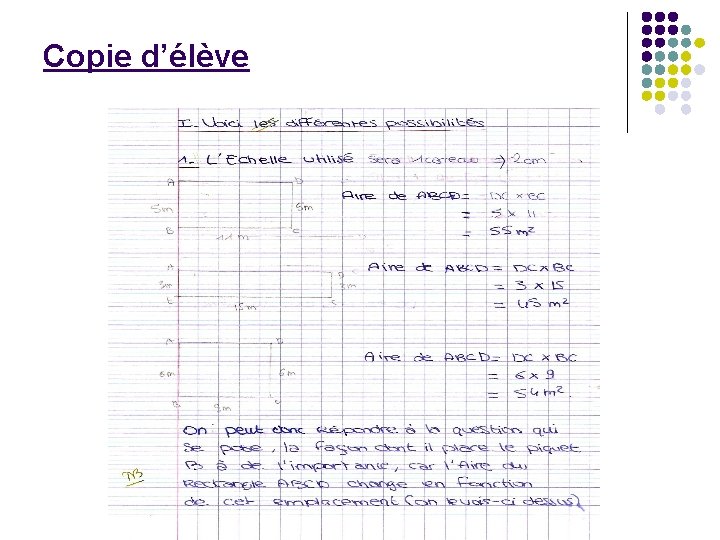 Copie d'élève
I. Voici les différentes possibilités
1. L'Echelle utilisé sera 1 carreau => 2cm
A D
5m 5m
B 11m C
Aire de ABCD = DC x BC
= 5 x 11
= 55 m²
A D
3m 3m
B 15m C
Aire de ABCD = DC x BC
= 3 x 15
= 45 m²
A D
6m 6m
B 9m C
Aire de ABCD = DC x BC
= 6 x 9
= 54 m².
On peut donc répondre à la question qui
se pose, la façon dont il place le piquet
B à de l'importance, car l'Aire du
Rectangle ABCD change en fonction
de cet emplacement (on vois-ci dessus)
TB